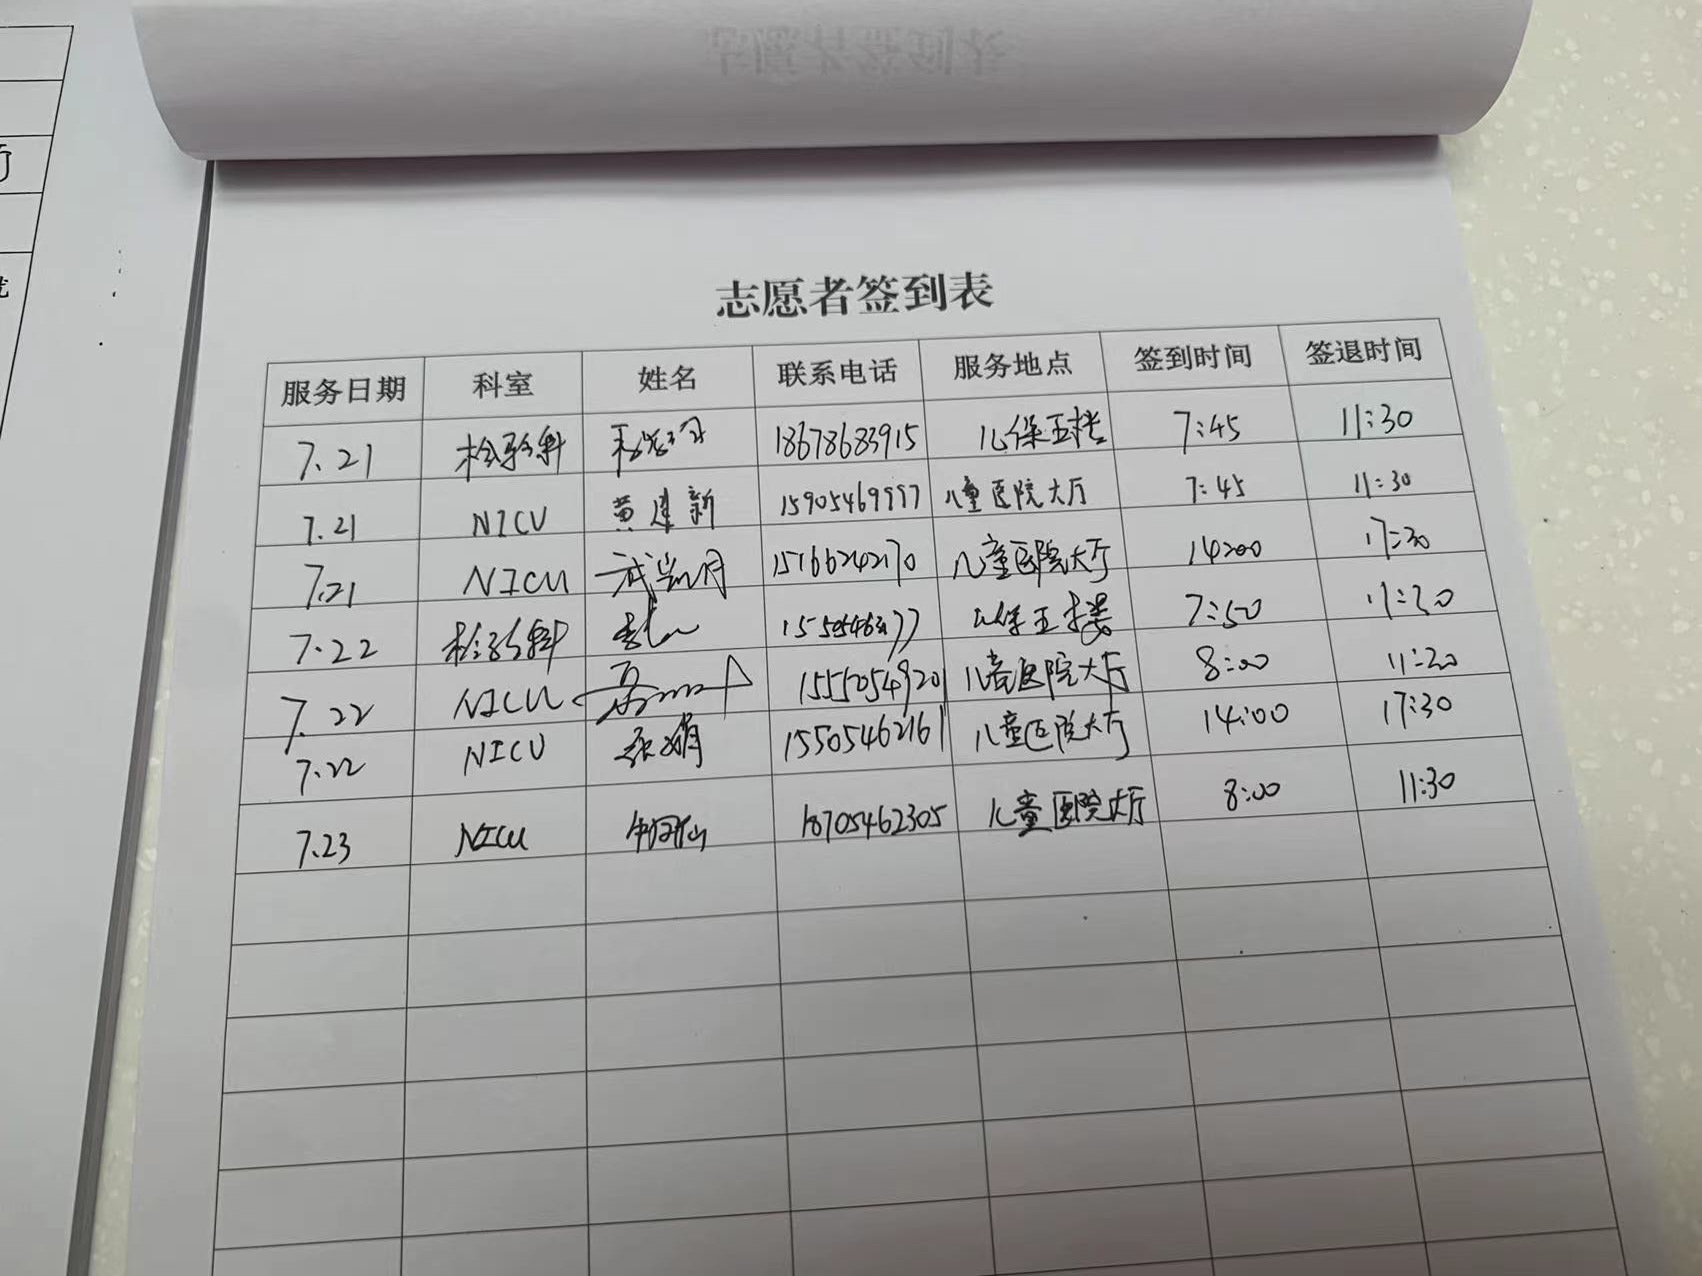 志愿者签到表
服务日期 科室 姓名 联系电话 服务地点 签到时间 签退时间
7.21 检验科 18678683915 儿保五楼 7:45 11:30
7.21 NICU 黄建新 15905469997 儿童医院大厅 7:45 11:30
7.21 NICU 15166242170 儿童医院大厅 14:00 17:30
7.22 检验科 儿保五楼 7:50 11:30
7.22 NICU 儿童医院大厅 8:00 11:30
7.22 NICU 张娟 15505462161 儿童医院大厅 14:00 17:30
7.23 NICU 18705462305 儿童医院大厅 8:00 11:30